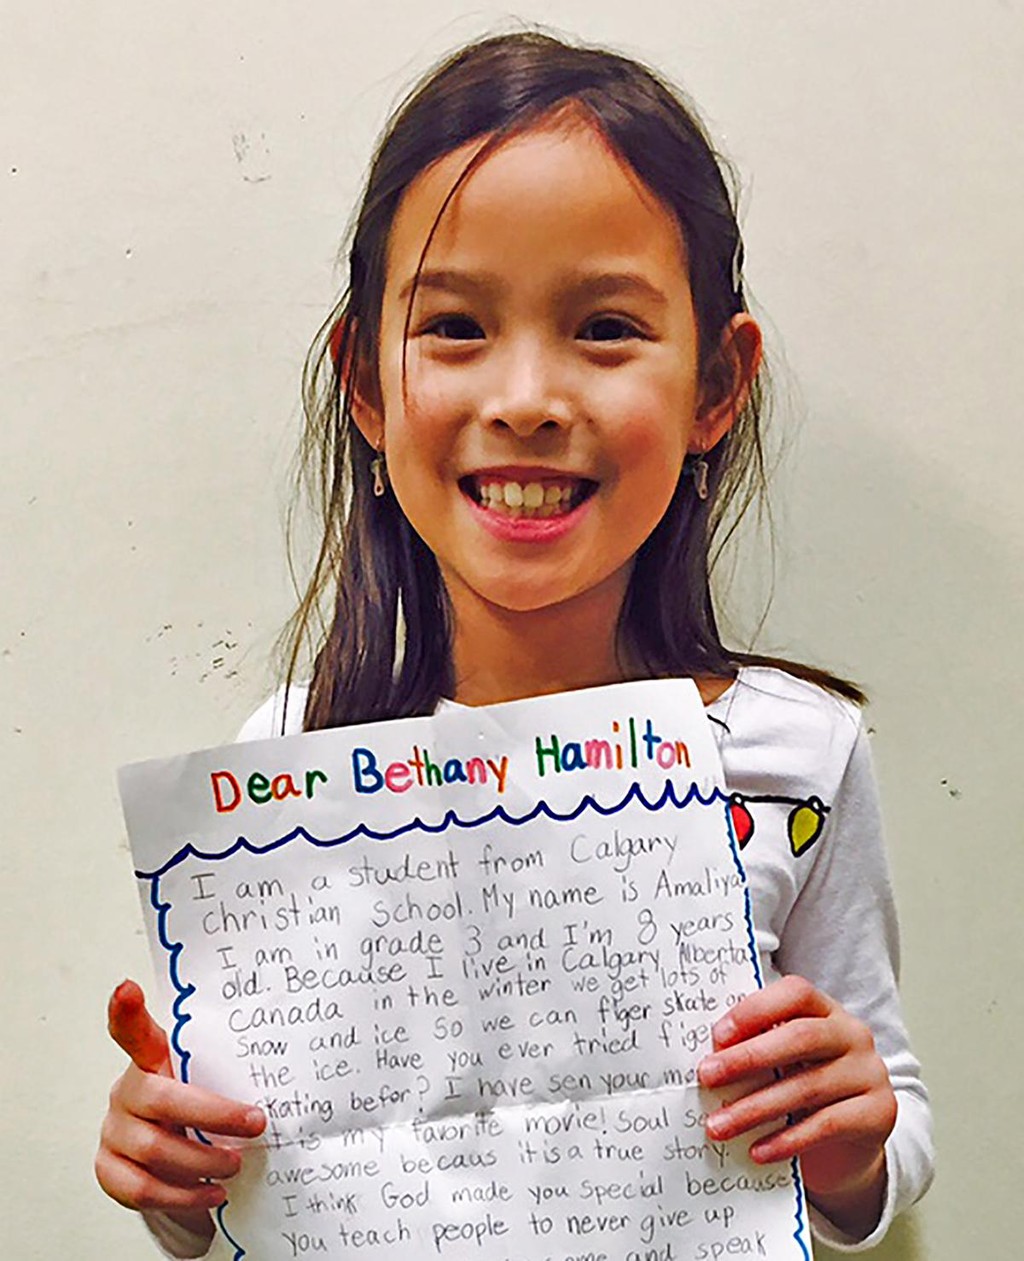 Dear Bethany Hamilton
I am a student from Calgary
christian school. My name is Amaliya
I am in grade 3 and I'm 8 years
old. Because I live in Calgary Alberta
canada in the winter we get lots of
snow and ice so we can figer skate on
the ice. Have you ever tried figer
skating befor? I have sen your
It is my favorite movie! Soul
awesome becaus it is a true story.
I think God made you special because
you teach people to never give up
and speak